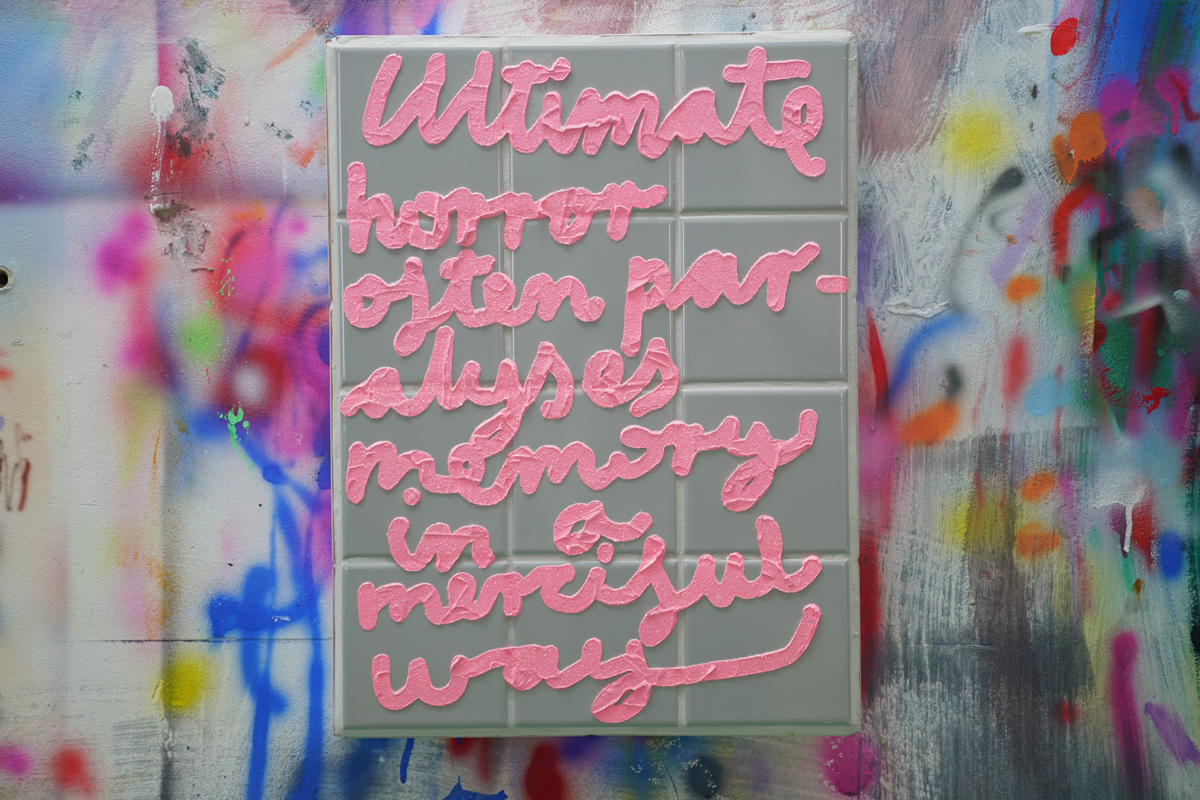 Ultimate
horror
often par-
alyses
memory
in a
merciful
way